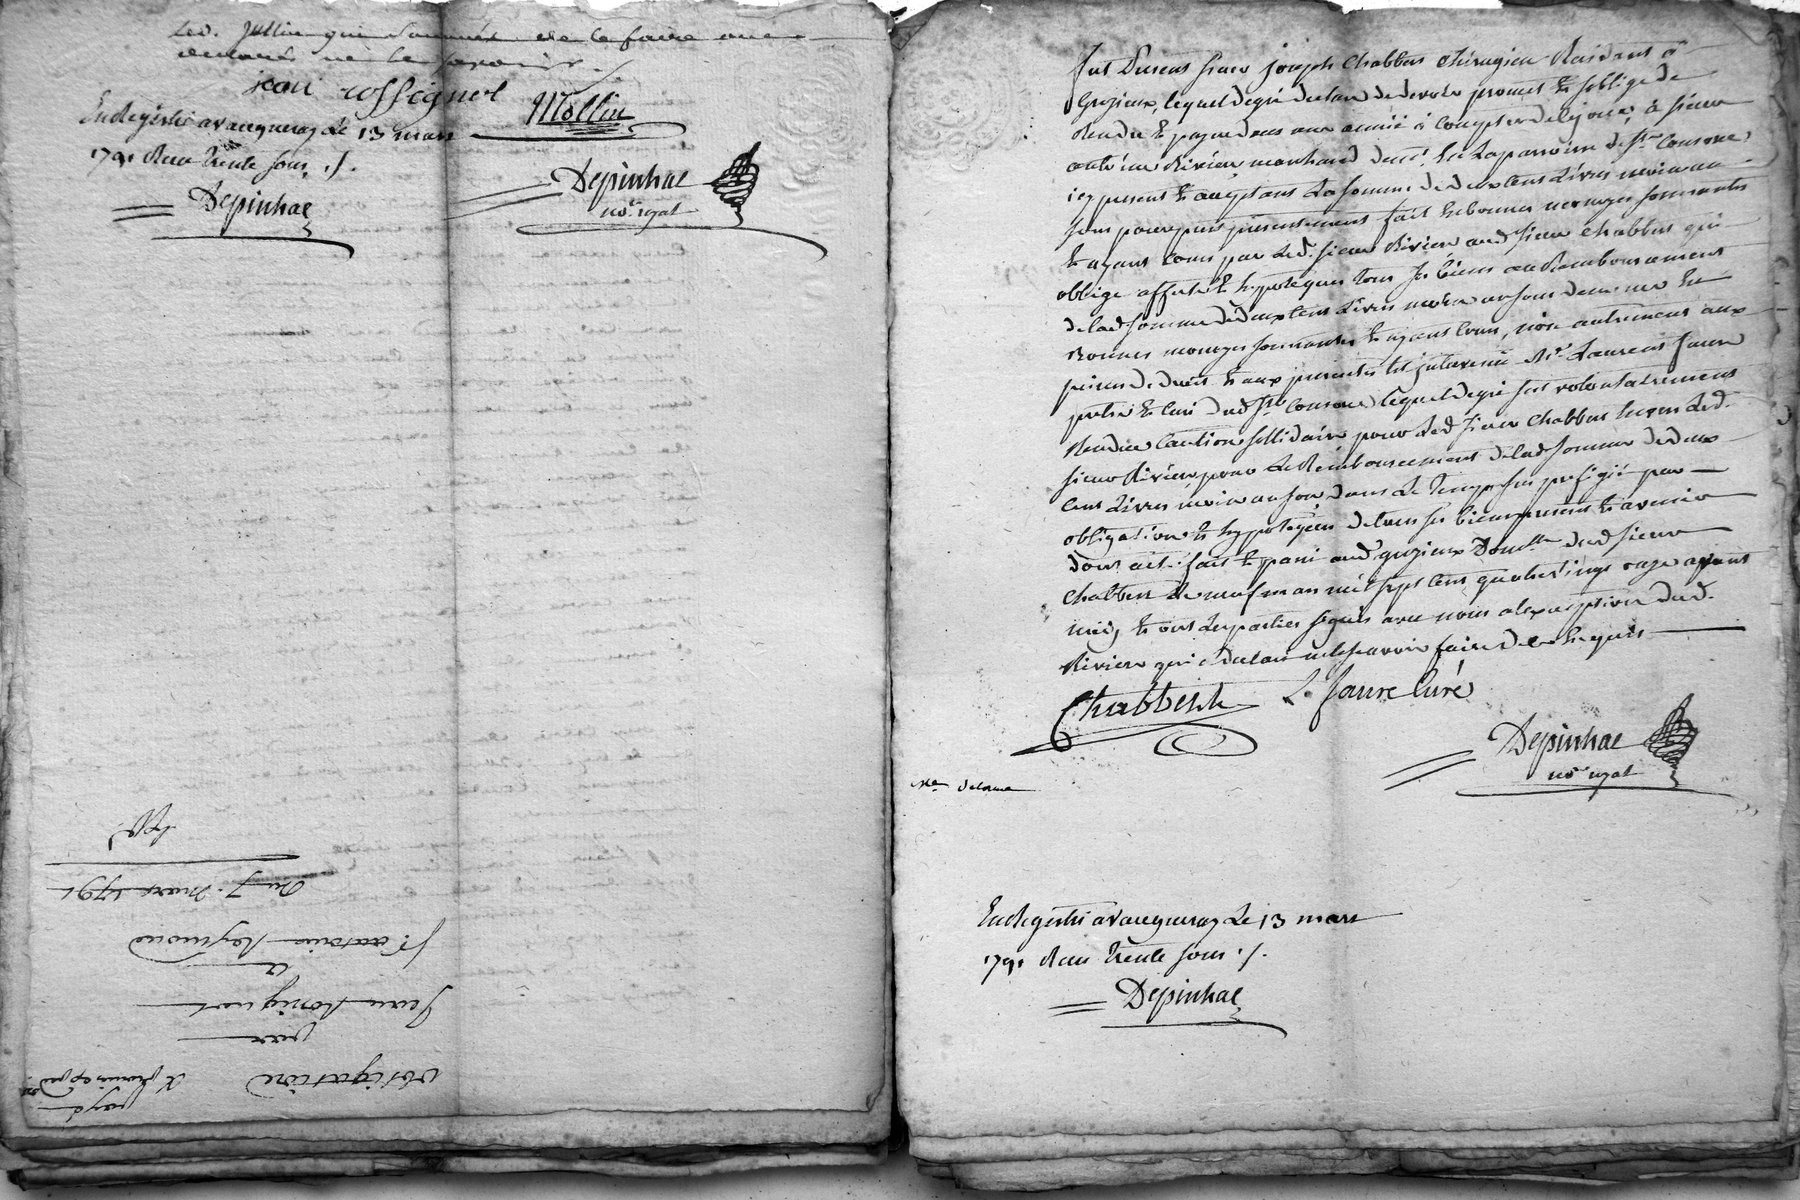 Led. Jullien qui Sommés de le faire ont
declarés ne le sçavoir
jean rossignol
Mollin
Enregistré a vaugneray Le 13 mars
1791 Reçu trente sous ./.
Depinhac
Depinhac
not. royal
Obligation
par
Jean Rossignol
a
St. antoine Reymond
Du 7. mars 1791
payé
Fut Présent sieur joseph Chabbert chirurgien Résidant à
Grezieux, lequel de gré declare devoir promet et s'oblige de
Rendre et payer dans une année à compter de ce jour, à sieur
antoine Rivière marchand dem.t en La paroisse de S.te Consorce
icy present et aceptant La somme de deux cens Livres moin un
sous pour prest presentement fait en bonnes monoyes sonnantes
et ayant cours par Led. sieur Rivière aud. sieur Chabbert qui
oblige affecte et hypotèque tous ses biens au Remboursement
de lad. somme de deux cens Livres moin un sous de même en
Bonnes monoyes sonnantes et ayant cours, non autrement aux
peines de droit et aux presentes est intervenu S.r Laurent faure
prêtre et Curé dud. S.te Consorce lequel de gré s'est volontairement
Rendu Caution sollidaire pour Led. sieur Chabbert envers Led.
sieur Rivière, pour Le Remboursement de lad. somme de deux
cens Livres moin un sou dans Le temps sus prefigié par
obligation et hypotèque de tous ses biens présent et avenir
dont acte: fait et passé aud. grezieux Dom.lle dud. sieur
Chabbert Le neuf mars mil sept cens quatre vings onze avant
midy et ont Les parties signés avec nous a l'exception dud.
Rivière qui a declaré ne le sçavoir faire de ce Enquis
Chabbert
L. faure Curé
Depinhac
not. royal
Enregistré a vaugneray Le 13 mars
1791 Reçu trente sous ./.
Depinhac